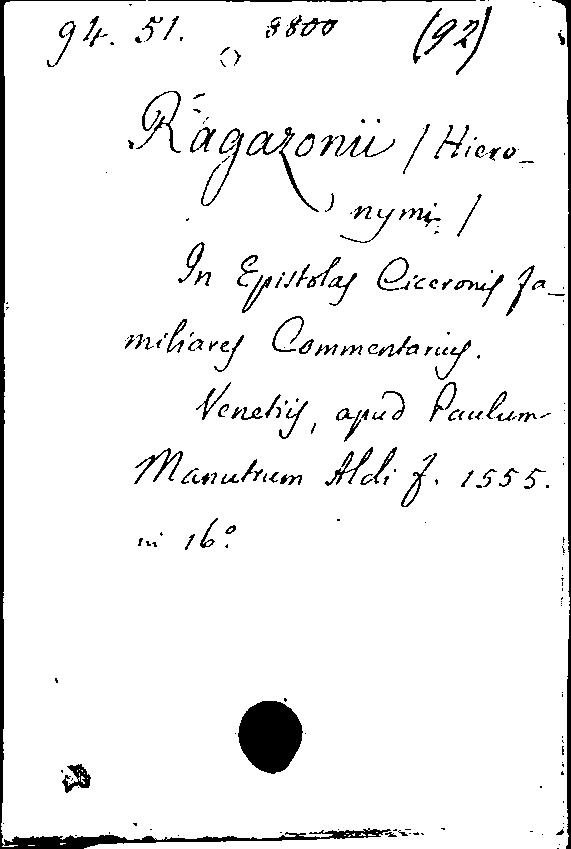 94. 51. 3800 (92)
Ragazonii / Hiero-
nymi /
In Epistolas Ciceronis fa-
miliares Commentarius.
Venetiis, apud Paulum
Manutium Aldi f. 1555.
in 16°